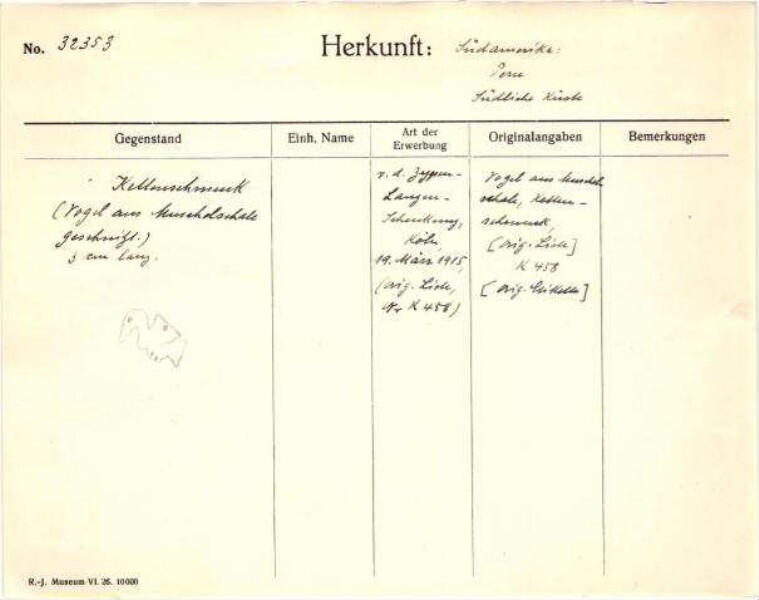 No. 32353
Herkunft: Südamerika:
Peru
Südliche Küste
Gegenstand
Einh. Name
Art der
Erwerbung
Originalangaben
Bemerkungen
Kettenschmuck
(Vogel aus Muschelschale
geschnitzt.)
3 cm lang.
v. d. Zypen-
Langen-
Schenkung,
Köln,
19. März 1915,
(orig. Liste,
Nr K 458)
Vogel aus Muschel
schale, Ketten-
schmuck,
[orig. Liste]
K 458
[orig. Etikette]
R.-J. Museum VI. 26. 10000